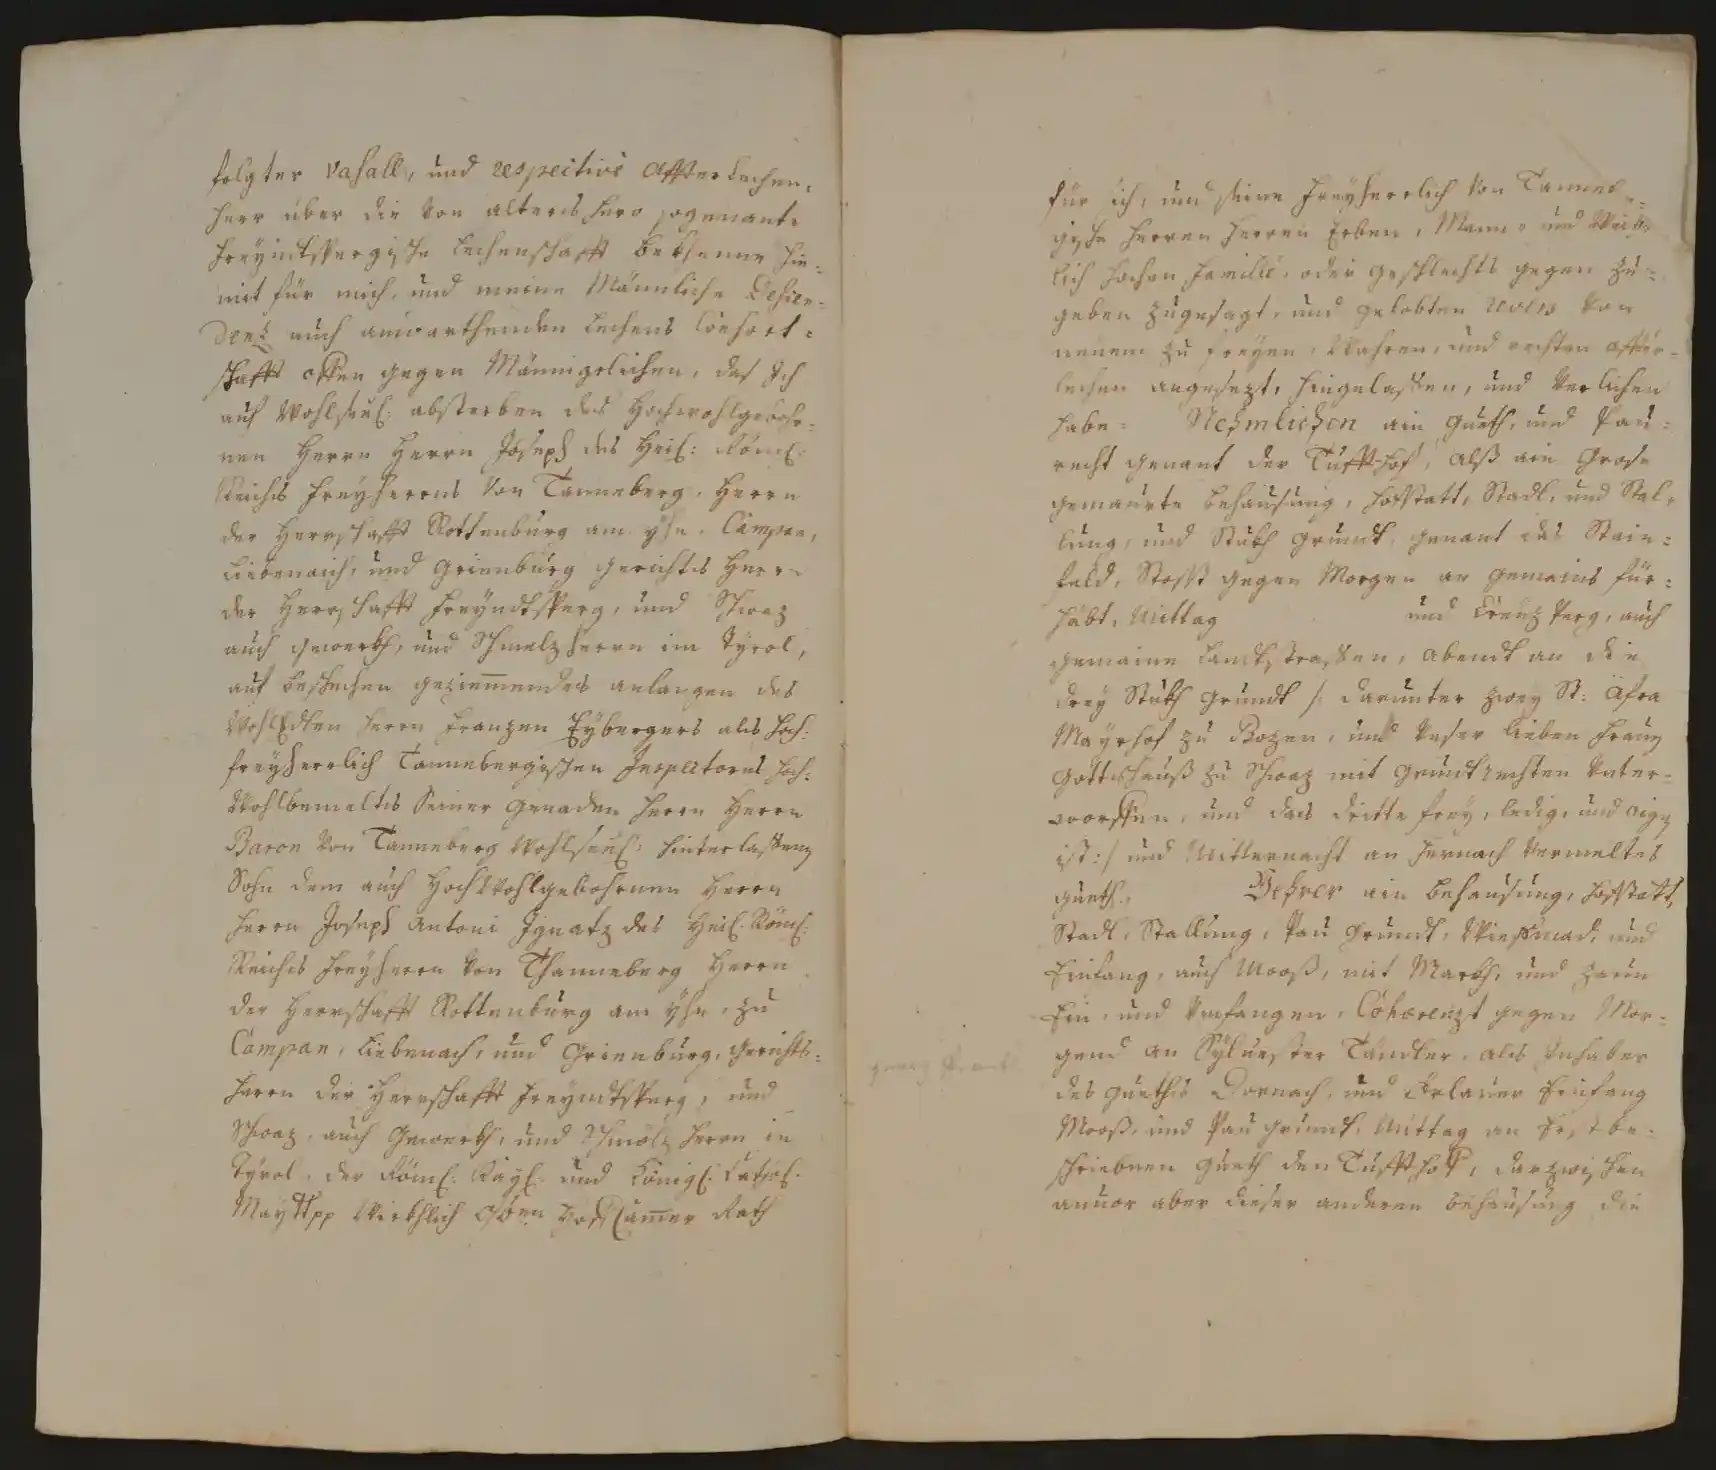 folgter Vasall, und respective Affterlechen,
herr über die von alters hero sogenante
Freyndtspergische Lechenschafft bekhenne hie=
mit für mich, und meine Männliche Descen=
dent auch anwarthenden Lechens Consort=
schafft offen gegen Männigelichen, das Ich
auf Wohlseel: absterben des Hochwohlgebohr=
nen Herrn Herrn Joseph des Heil: Röm:
Reichs Freyherrns von Tanneberg, Herrn
der Herrschafft Rottenburg am Yhn, Campan,
Liebenaich, und Grienburg gerichts Herrn
der Herrschafft Freyndtsperg, und Schwaz
auch gwerkh, und Schmelzherrn im Tyrol,
auf beschechen geziemmendes anlangen des
WohlEdlen Herrn Franzen Eybergers als Hoch:
freyherrlich Tannebergischen Inspectorns Hoch:
Wohlbemeltes Seiner Gnaden Herrn Herrn
Baron von Tanneberg Wohlseel: hinterlassenen
Sohn dem auch HochWohlgebohrnen Herrn
Herrn Joseph Antoni Ignatz des Heil: Röm:
Reichs Freyherrn von Thanneberg Herrn
der Herrschafft Rottenburg am Yhn, zu
Campan, Liebenach, und Grienburg, Gerichts=
herrn der Herrschafft Freyndtsperg, und
Schwaz, auch Gwerkh, und Schmölz Herrn in
Tyrol, der Röm: Kayl: und Königl: Cathol:
Maytt pp Wirkhlich Hof Cammer Rath
für sich, und seine Freyherrlich von Tanneb=
gische Herren Herren Erben, Mann= und Weib=
lich hochen Familie, oder geschlechts gegen zu=
geben zugesagt, und gelobten von
neuem zu freyen, Wahren, und rechten affter=
lechen angesezt, hingelassen, und Verlichen
habe= Nehmlichen ain Gueth, und Pau=
recht genant der Tufft-hof, alß ain Grose
gemaurte behausung, hofstatt, Stadl, und Stal=
lung, und Stukh Grundt, genant das Stain=
feld, Stosst gegen Morgen an gemains für=
häbt, Mittag und Creuz Perg, auch
gemaine Landtstrassen, Abendt an die
drey Stukh Grundt /: darunter zwey St: Afra
Mayrhof zu Bozen, und Unser lieben Frauen
Gottshauß zu Schwaz mit Grundtrechten Unter=
worffen, und das dritte frey, ledig, und aigen
ist:/ und Mitternacht an hernach Vermeltes
gueth. Mehrer ain behausung, hofstatt,
Stadl, Stallung, Pau Grundt, Wießmad, und
Einfang, auch Mooß, mit Markh, und Zaun
Ein, und Umfangen, Cohaerenzt gegen Mor=
gend an Sylvester Tändler, als Inhaber
des gueths Dornach, und Einfang
Mooß, und Pau grundt, Mittag an Erstbe=
schribnen gueth den Tuffthof, darzwischen
anuor aber dieser anderen behausung die